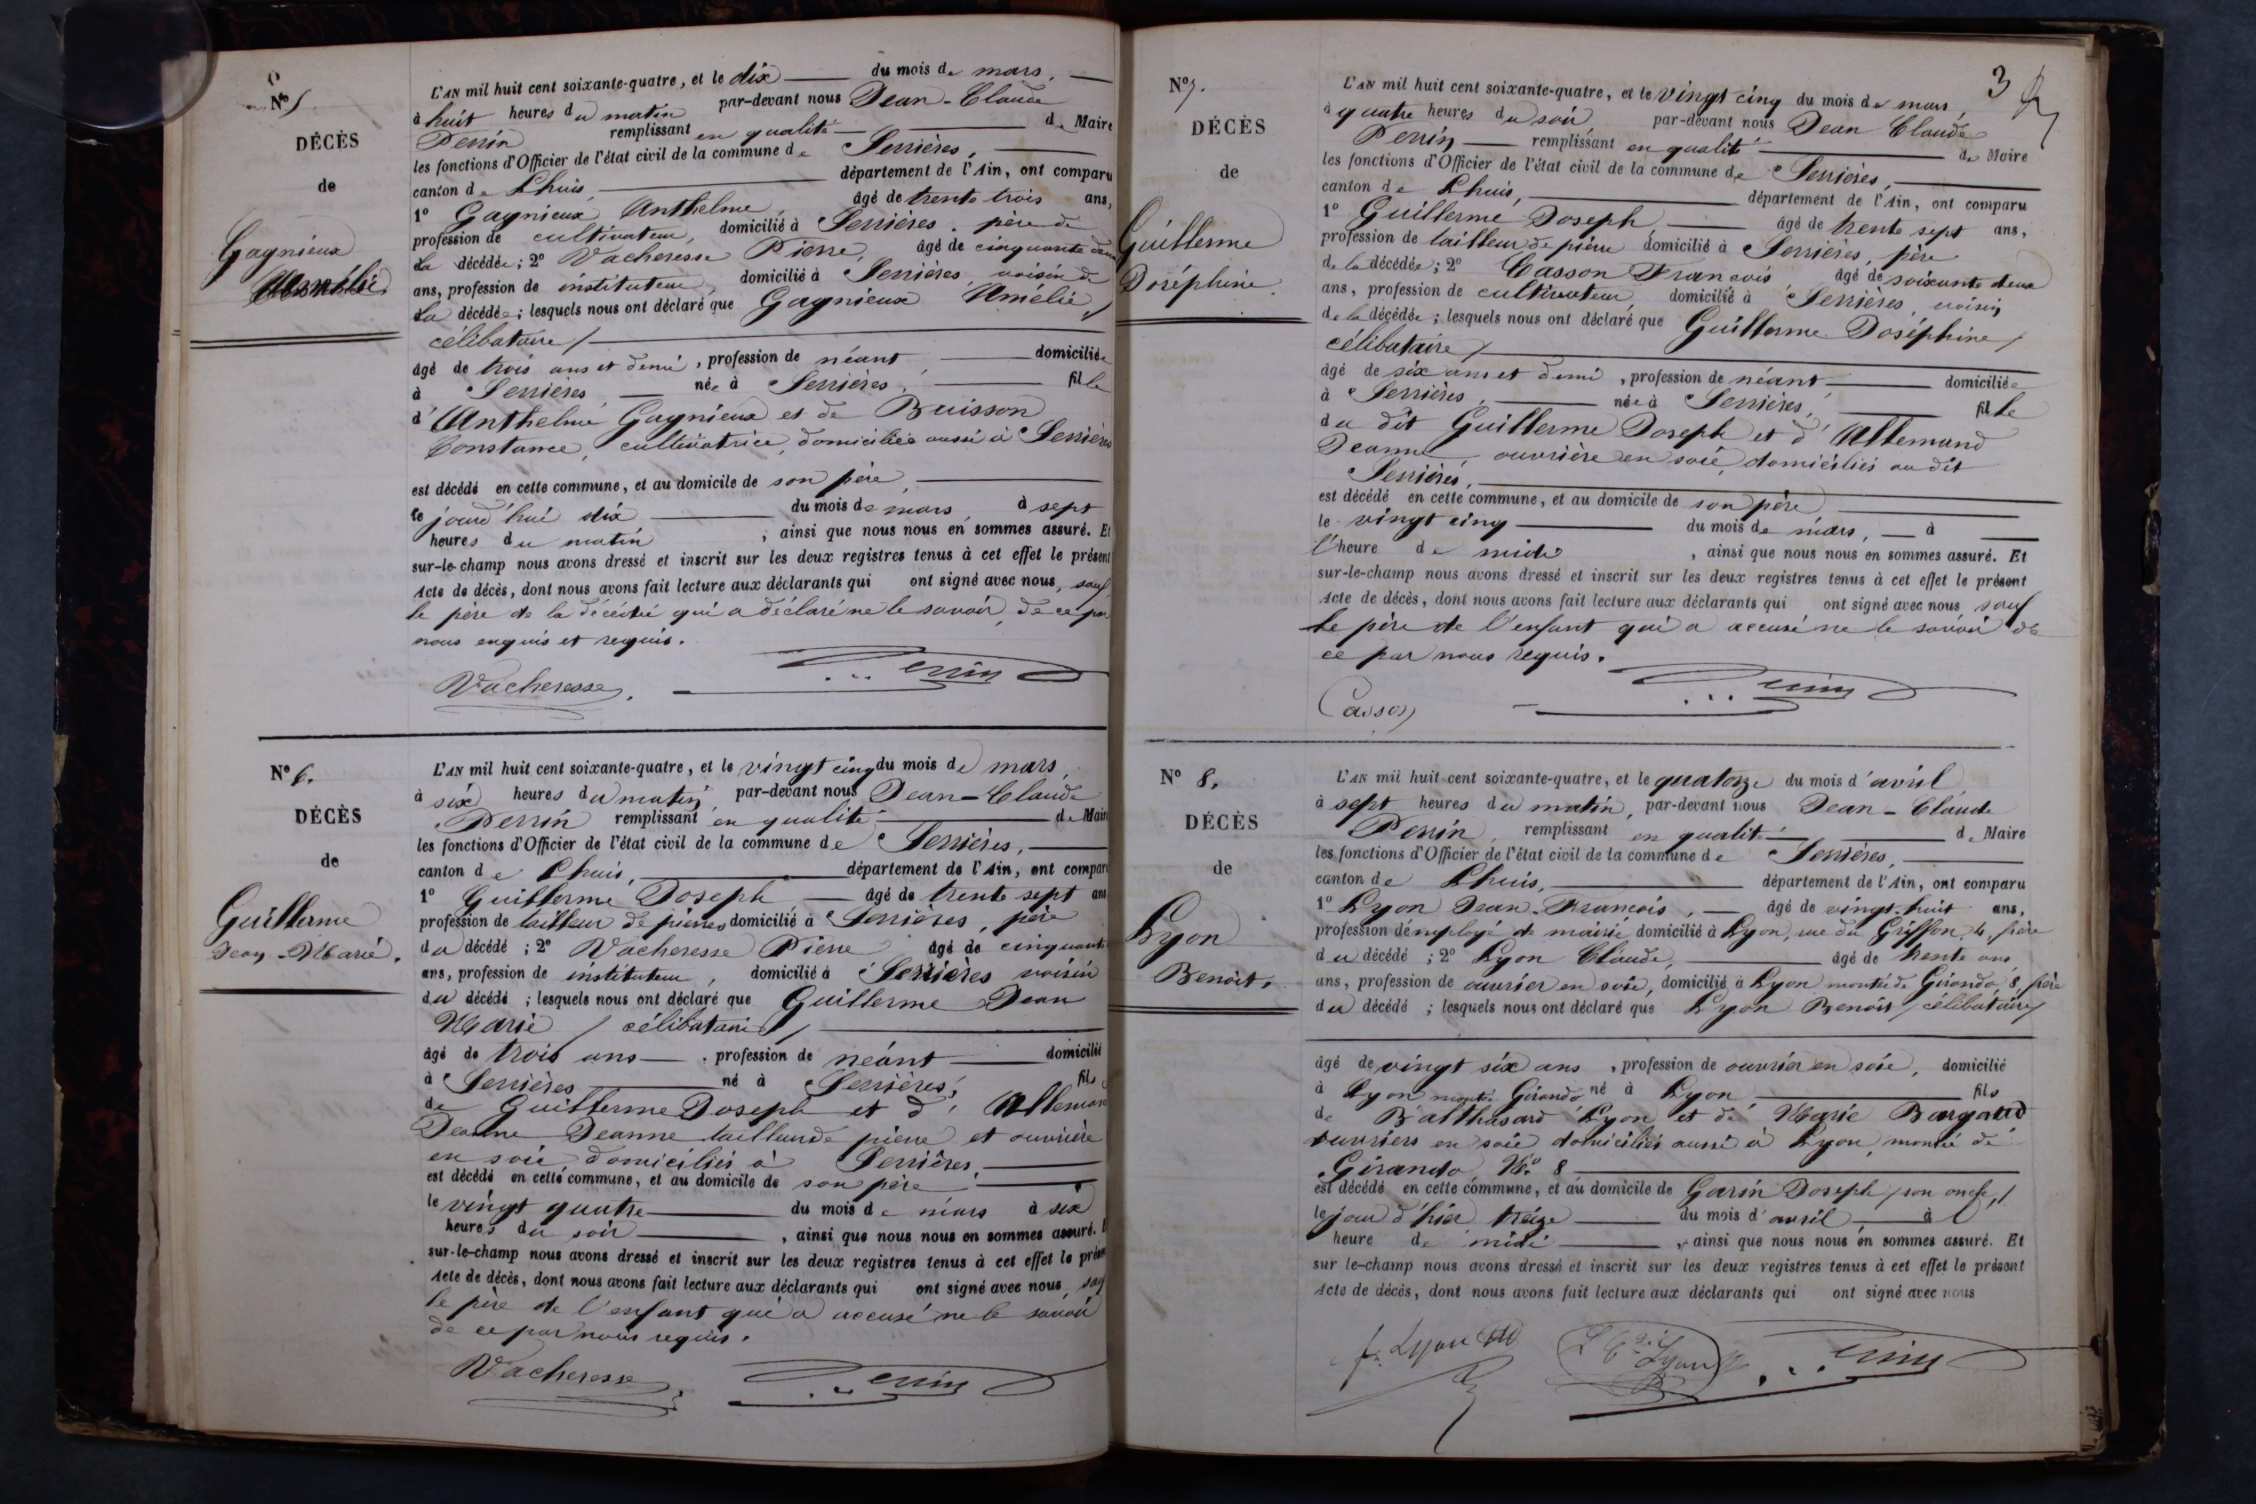 N° 5.
DÉCÈS
de
Gagnieux
Amélie
L'AN mil huit cent soixante-quatre, et le dix du mois de mars,
à huit heures du matin par-devant nous Jean-Claude
Perrin remplissant en qualité de Maire
les fonctions d'Officier de l'état civil de la commune de Serrières,
canton de Lhuis, département de l'Ain, ont comparu
1° Gagnieux Anthelme, âgé de trente trois ans,
profession de cultivateur, domicilié à Serrières, père de
la décédée; 2° Vacheresse Pierre, âgé de cinquante deux
ans, profession de instituteur, domicilié à Serrières, voisin de
la décédée; lesquels nous ont déclaré que Gagnieux Amélie,
célibataire /
âgé de trois ans et demi, profession de néant domiciliée
à Serrières, née à Serrières, fille
d'Anthelme Gagnieux et de Buisson
Constance, cultivatrice, domiciliés aussi à Serrières
est décédé en cette commune, et au domicile de son père,
le jourd'hui dix du mois de mars, à sept
heures du matin, ainsi que nous nous en sommes assuré. Et
sur-le-champ nous avons dressé et inscrit sur les deux registres tenus à cet effet le présent
Acte de décès, dont nous avons fait lecture aux déclarants qui ont signé avec nous, sauf
le père de la décédée qui a déclaré ne le savoir, de ce par
nous enquis et requis.
Vacheresse. Perrin
N° 6.
DÉCÈS
de
Guillerme
Jean-Marie.
L'AN mil huit cent soixante-quatre, et le vingt cinq du mois de mars,
à six heures du matin, par-devant nous Jean-Claude
Perrin remplissant en qualité de Maire
les fonctions d'Officier de l'état civil de la commune de Serrières,
canton de Lhuis, département de l'Ain, ont comparu
1° Guillerme Joseph âgé de trente sept ans
profession de tailleur de pierres domicilié à Serrières, père
du décédé; 2° Vacheresse Pierre âgé de cinquante
ans, profession de instituteur, domicilié à Serrières voisin
du décédé; lesquels nous ont déclaré que Guillerme Jean
Marie / célibataire /
âgé de trois ans, profession de néant domicilié
à Serrières né à Serrières, fils
de Guillerme Joseph et d'Allemand
Jeanne Jeanne tailleur de pierre et ouvrière
en soie domiciliés à Serrières,
est décédé en cette commune, et au domicile de son père
le vingt quatre du mois de mars à six
heures du soir, ainsi que nous nous en sommes assuré. E
sur-le-champ nous avons dressé et inscrit sur les deux registres tenus à cet effet le présent
Acte de décès, dont nous avons fait lecture aux déclarants qui ont signé avec nous, sauf
le père de l'enfant qui a accusé ne le savoir
de ce par nous requis.
Vacheresse Perrin
3
N° 7.
DÉCÈS
de
Guillerme
Joséphine.
L'AN mil huit cent soixante-quatre, et le vingt cinq du mois de mars,
à quatre heures du soir par-devant nous Jean Claude
Perrin remplissant en qualité de Maire
les fonctions d'Officier de l'état civil de la commune de Serrières,
canton de Lhuis, département de l'Ain, ont comparu
1° Guillerme Joseph âgé de trente sept ans,
profession de tailleur de pierre domicilié à Serrières, père
de la décédée; 2° Casson François âgé de soixante deux
ans, profession de cultivateur domicilié à Serrières, voisin
de la décédée; lesquels nous ont déclaré que Guillerme Joséphine /
célibataire /
âgé de six ans et demi, profession de néant domiciliée
à Serrières, née à Serrières, fille
du dit Guillerme Joseph et d'Allemand
Jeanne ouvrière en soie, domiciliés au dit
Serrières,
est décédé en cette commune, et au domicile de son père
le vingt cinq du mois de mars, à
l'heure de midi, ainsi que nous nous en sommes assuré. Et
sur-le-champ nous avons dressé et inscrit sur les deux registres tenus à cet effet le présent
Acte de décès, dont nous avons fait lecture aux déclarants qui ont signé avec nous sauf
le père de l'enfant qui a accusé ne le savoir de
ce par nous requis.
Casson Perrin
N° 8.
DÉCÈS
de
Lyon
Benoît.
L'AN mil huit cent soixante-quatre, et le quatorze du mois d'avril
à sept heures du matin, par-devant nous Jean-Claude
Perrin, remplissant en qualité de Maire
les fonctions d'Officier de l'état civil de la commune de Serrières,
canton de Lhuis, département de l'Ain, ont comparu
1° Lyon Jean-François, âgé de vingt-huit ans,
profession d'employé de mairie domicilié à Lyon, rue du Griffon, 4, frère
du décédé; 2° Lyon Claude, âgé de trente ans
ans, profession de ouvrier en soie, domicilié à Lyon montée de Girando, 8, frère
du décédé; lesquels nous ont déclaré que Lyon Benoît / célibataire /
âgé de vingt six ans, profession de ouvrier en soie, domicilié
à Lyon monté Girando né à Lyon fils
de Balthasard Lyon et de Marie Bargaud
ouvriers en soie domiciliés aussi à Lyon, montée de
Girando N° 8
est décédé en cette commune, et au domicile de Garin Joseph / son oncle, /
le jour d'hier treize du mois d'avril, à l'
heure de midi, ainsi que nous nous en sommes assuré. Et
sur-le-champ nous avons dressé et inscrit sur les deux registres tenus à cet effet le présent
Acte de décès, dont nous avons fait lecture aux déclarants qui ont signé avec nous
Lyon Lyon Perrin